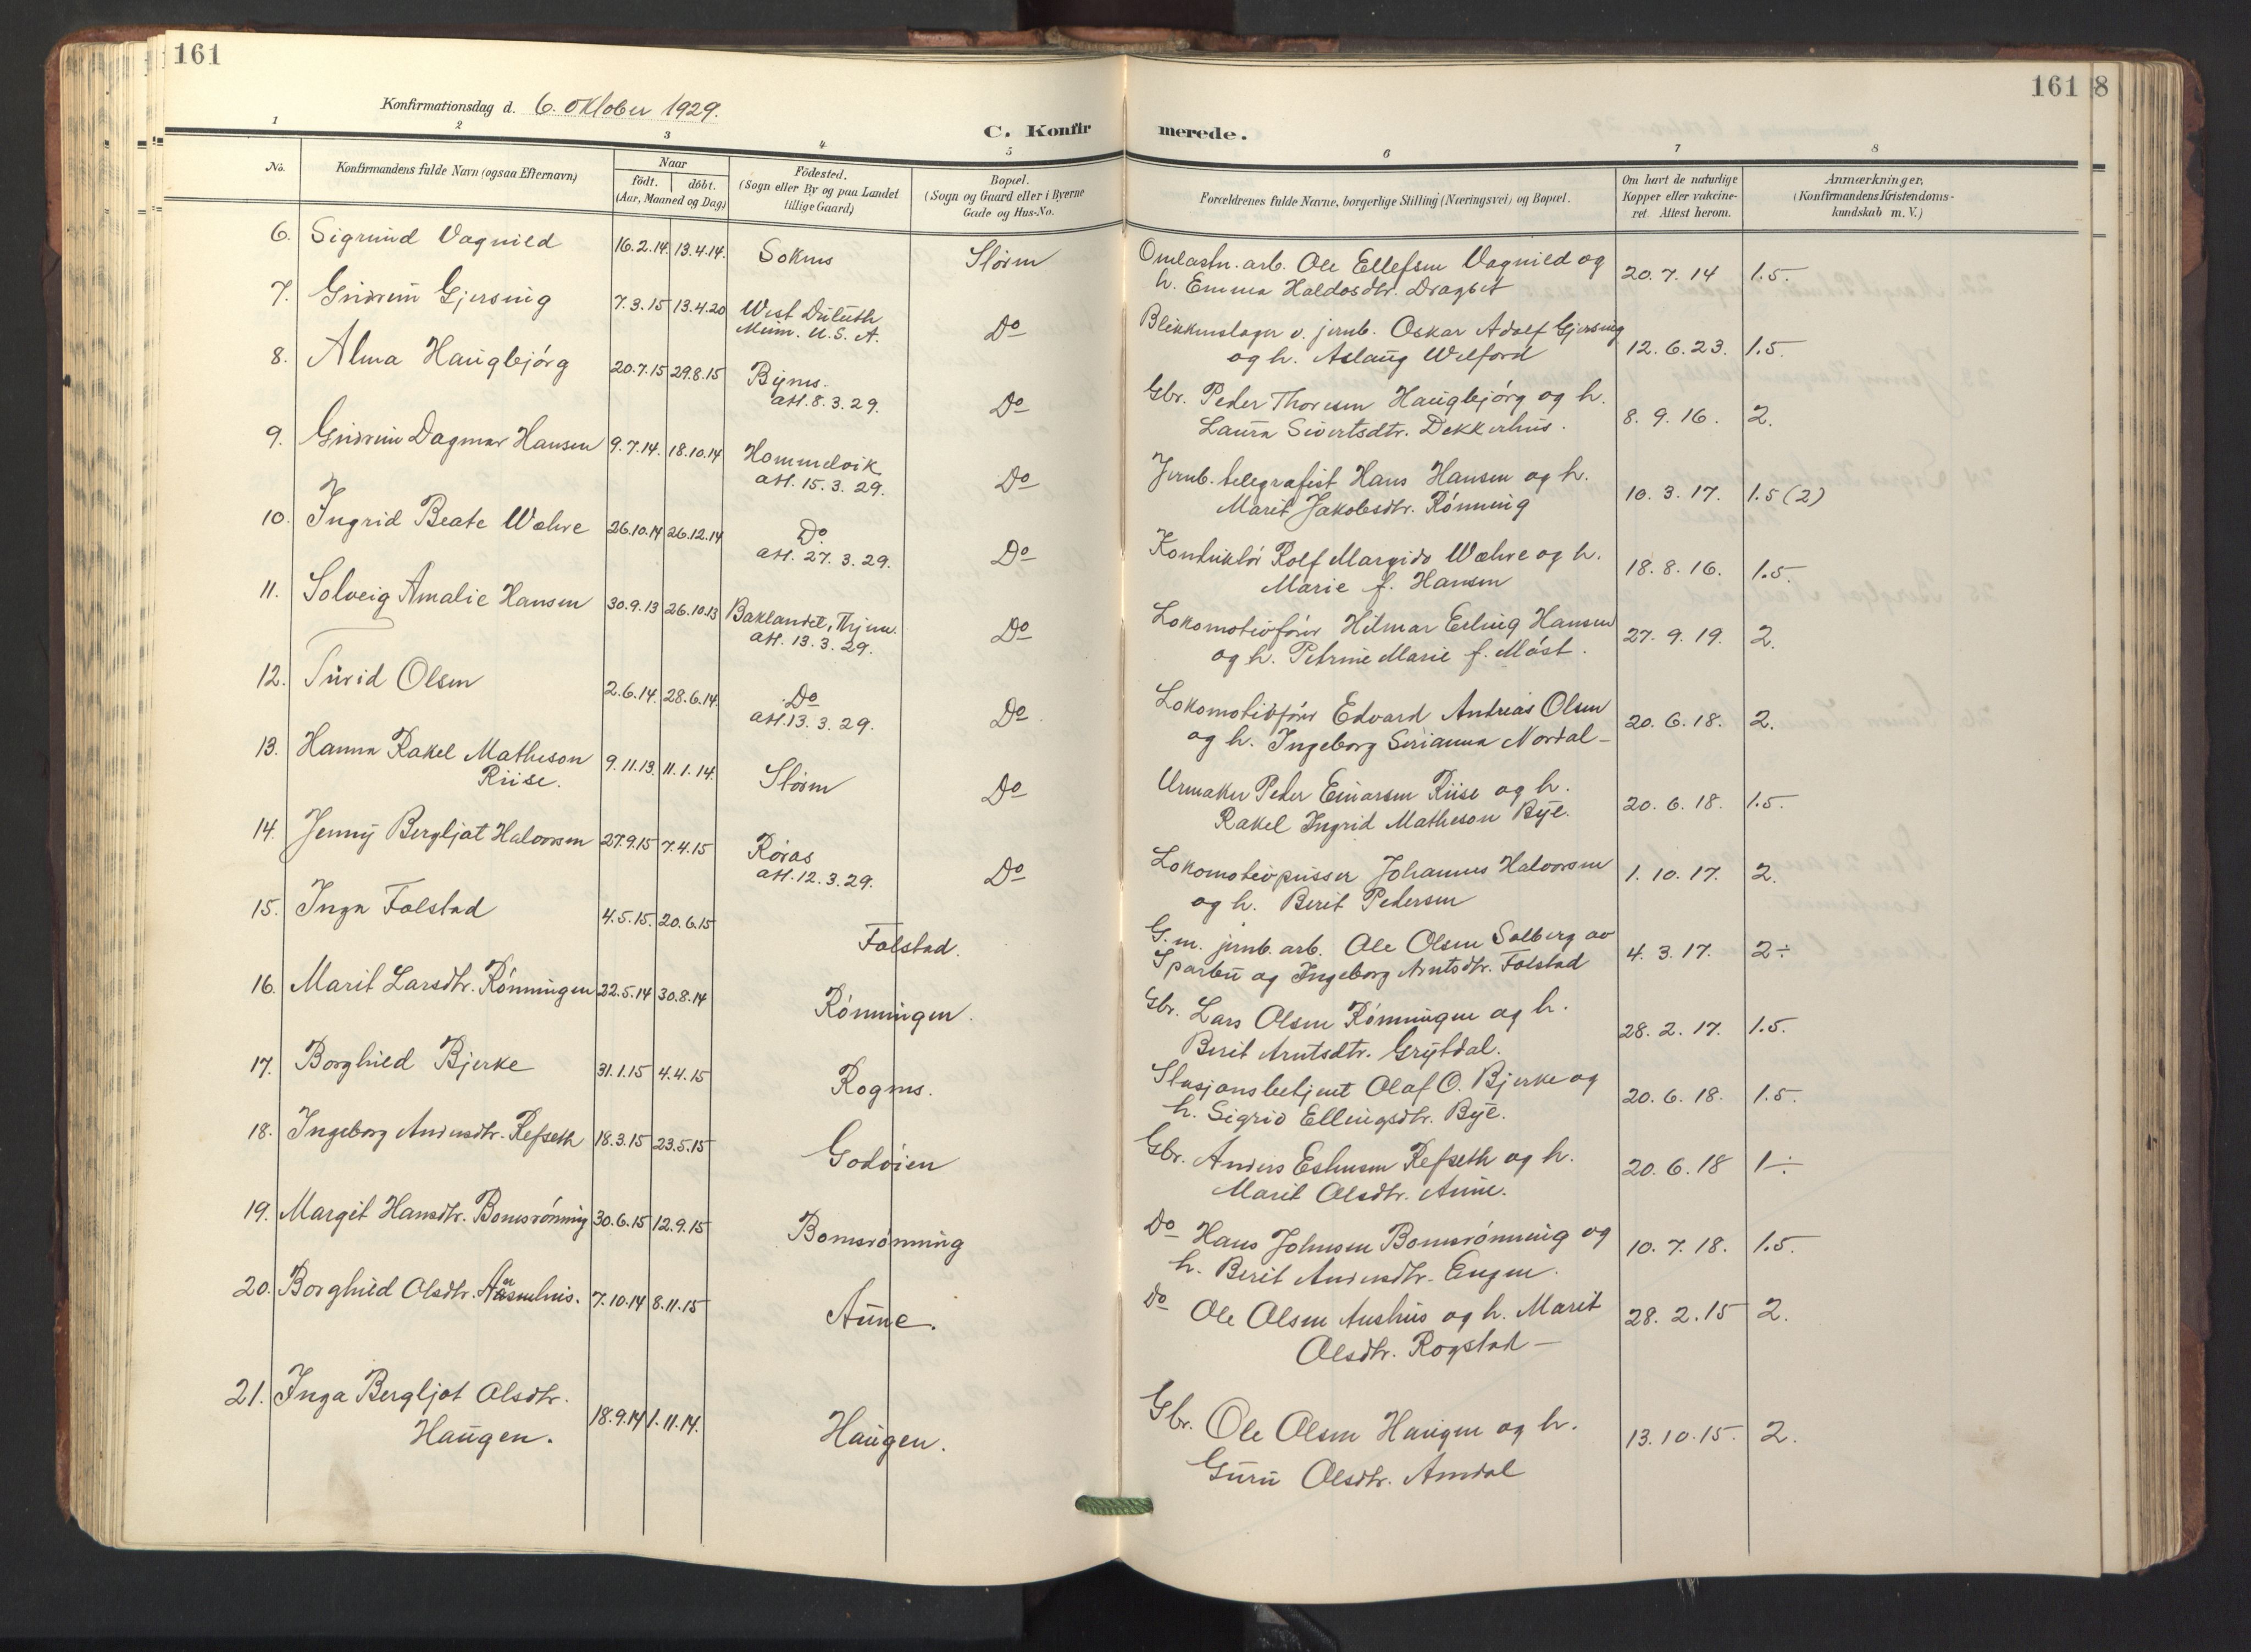 161
161 8
Konfirmationsdag d. 6. oktober 1929.
C. Konfir merede.
1 2 3 4 5 6 7 8
No.
Konfirmandens fulde Navn (ogsaa Efternavn)
Naar
födt. döbt.
(Aar, Maaned og Dag)
Födested.
(Sogn eller By og paa Landet
tillige Gaard)
Bopæl.
(Sogn og Gaard eller i Byerne
Gade og Hus-No.
Forældrenes fulde Navne, borgerlige Stilling (Næringsvei) og Bopæl.
Om havt de naturlige
Kopper eller vakcine-
ret. Attest herom.
Anmærkninger,
(Konfirmandens Kristendoms-
kundskab m. V.)
6. Sigrund Vagnild 16.2.14. 13.4.14. Sokns Støren
Ole Ellefsen Vagnild og 20.7.14 1.5.
h. Emma Haldosdtr. Dragset
7. Gudrun Gjersing 7.3.15 13.4.20 West Duluth
Minn. U.S.A. Do
Blikkenslager v. jernb. Oskar Adolf Gjersing
og h. Aslaug Welford 12.6.23. 1.5.
8. Alma Haugbjørg 20.7.15 29.8.15 Byns.
att. 8.3.29. Do
Gbr. Peder Thoresen Haugbjørg og h.
Laura Sivertsdtr. Dekkerhus. 8.9.16. 2.
9. Gudrun Dagmar Hansen 9.7.14. 18.10.14 Hommelvik
att. 15.3.29. Do
Jernb. telegrafist Hans Hansen og h.
Marit Jakobsdtr. Rønning 10.3.17. 1.5 (2)
10. Ingrid Beate Wæhre 26.10.14 26.12.14 Do
att. 27.3.29. Do
Konduktør Rolf Margido Wæhre og h.
Marie f. Hansen 18.8.16. 1.5.
11. Solveig Amalie Hansen 30.9.13 26.10.13 Baklandet, Thjem.
att. 13.3.29. Do
Lokomotivfører Hilmar Erling Hansen
og h. Petrine Marie f. Møst. 27.9.19. 2.
12. Turid Olsen 2.6.14. 28.6.14. Do
att. 13.3.29. Do
Lokomotivfører Edvard Andreas Olsen
og h. Ingeborg Serianna Nordal 20.6.18. 2.
13. Hanna Rakel Matheson
Riise. 9.11.13. 11.1.14. Støren Do
Urmaker Peder Einarsen Riise og h.
Rakel Ingrid Matheson Bye. 20.6.18. 1.5.
14. Jenny Bergljot Halvorsen 27.9.15 7.4.15 Røros
att. 12.3.29. Do
Lokomotivpusser Johannes Halvorsen
og h. Berit Pedersen 1.10.17. 2.
15. Inga Folstad 4.5.15. 20.6.15 Folstad.
G.m. jernb. arb. Ole Olsen Solberg av
Sparbu og Ingeborg Arntsdtr. Folstad 4.3.17. 2÷
16. Marit Larsdtr. Rønningen 22.5.14 30.8.14 Rønningen.
Gbr. Lars Olsen Rønningen og h.
Berit Arntsdtr. Grytdal. 28.2.17. 1.5.
17. Borghild Bjerke 31.1.15 4.4.15 Rognes.
Stasjonsbetjent Olaf O. Bjerke og
h. Sigrid Ellingsdtr. Bye. 20.6.18. 1.5.
18. Ingeborg Andersdtr. Refseth 18.3.15 23.5.15 Godøien
Gbr. Anders Estensen Refseth og h.
Marit Olsdtr. Aune. 20.6.18 1÷
19. Margit Hansdtr. Bonesrønning 30.6.15 12.9.15 Bonesrønning
Do Hans Johnsen Bonesrønning og
h. Berit Andersdtr. Engen. 10.7.18. 1.5.
20. Borghild Olsdtr. 7.10.14 8.11.15 Aune.
Do Ole Olsen Aushus og h. Marit
Olsdtr. Rogstad 28.2.15 2.
21. Inga Bergljot Olsdtr.
Haugen. 18.9.14 1.11.14. Haugen.
Gbr. Ole Olsen Haugen og h.
Guru Olsdtr. Amdal 13.10.15. 2.